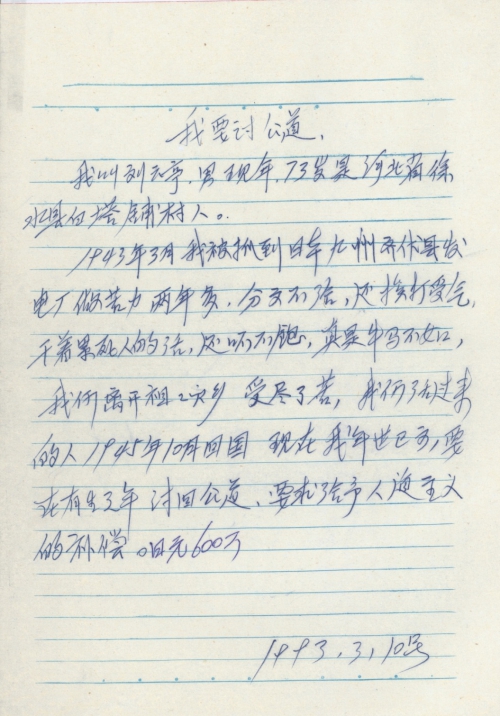 我要讨公道、
我叫刘云亭、男现年、73岁是河北省徐
水县白塔铺村人。
1943年3月我被抓到日本九州 县发
电厂做苦力两年多、分文不给、还挨打受气、
干着累死人的活、还吃不饱、真是牛马不如、
我们离开祖 之乡 受尽了苦、我们活过来
的人1945年10月回国 现在我年世已高、要
在有生之年讨回公道、要求给予人道主义
的补偿。日元600万
1993.3.10号